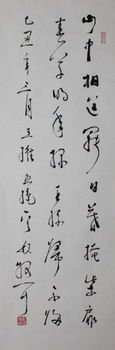 山中相送罷日暮掩柴扉
春草明年綠王孫歸不歸
乙丑年三月王維五絕